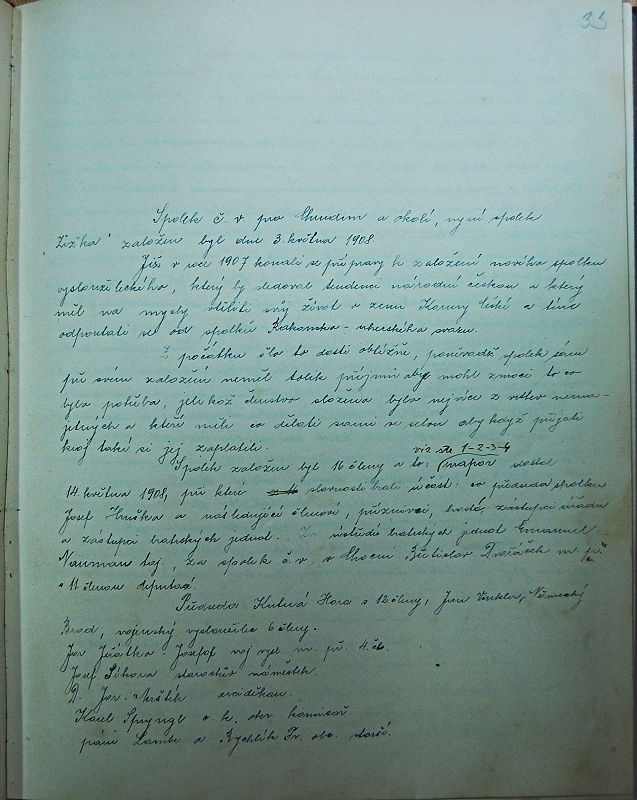 33
Spolek č. v. pro Chrudim a okolí, nyní spolek
Žižka" založen byl dne 3. května 1908.
Již v roce 1907 konali se přípravy k založení nového spolku
vysloužileckého, který by sledoval tendenci národně českou a který
měl na mysly vtěliti svůj život v zemi Koruny české a tím
odpoutati se od spolků Rakousko-uherského svazu.
Z počátku šlo to dosti obtížně, poněvadž spolek sám
při svém založení neměl tolik příjmů aby mohl zmoci to co
bylo potřeba, jelikož členstvo složeno bylo nejvíce z vrstev nema-
jetných a kteří měli co dělati sami se sebou aby když přijali
kroj také si jej zaplatili.
viz str 1-2-3-4
Spolek založen byl 16 členy a to: průvod dostal
14. května 1908, při které slavnosti brali účast: co předseda spolku
Josef Hruška a následující členové, příznivci, hosté, zástupci úřadu
a zástupci bratrských jednot. Za ústředí bratrských jednot Emanuel
Nauman taj., za spolek č. v. v Chocni Břetislav Dvořáček m. př.
s 11 členou deputací
Předseda Kutná Hora s 12 členy, Jan Vinkler, Německý
Brod, vojenský vysloužilec 6 členy.
Jar Jirátko - Josefof voj. vysl. m. př. 4. čl.
Josef Sýkora starostův náměstek.
D. Jar. Mrštík arciděkan.
Karel Spryngl c. k. okr. komisař.
páni Lamb a Rychlík Fr. ob. starší.